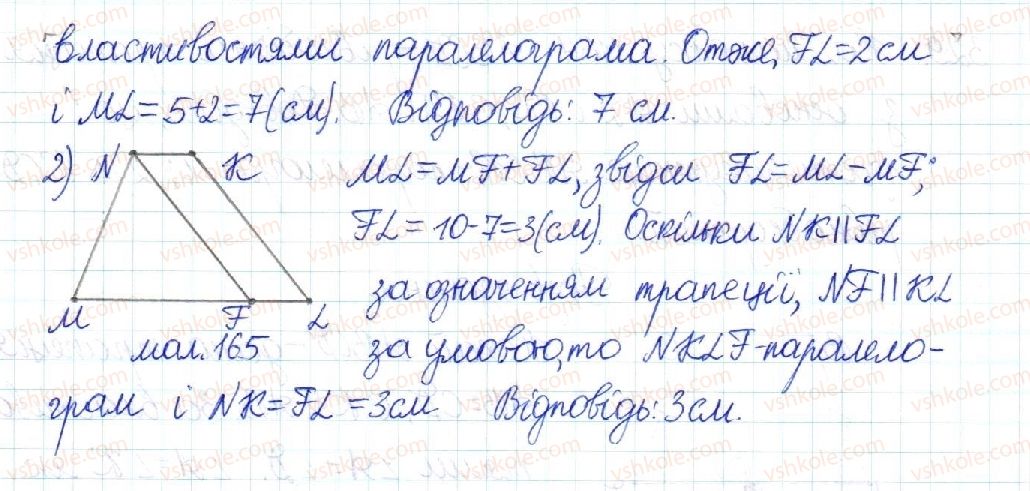 властивостями паралелограма. Отже, FL=2см
і ML=5+2=7(см). Відповідь: 7 см.
2) N K ML=MF+FL, звідси FL=ML-MF;
FL=10-7=3(см). Оскільки NK||FL
за означенням трапеції, NF||KL
M F L
мал.165 за умовою, то NKLF-паралело-
грам і NK=FL=3см. Відповідь: 3см.